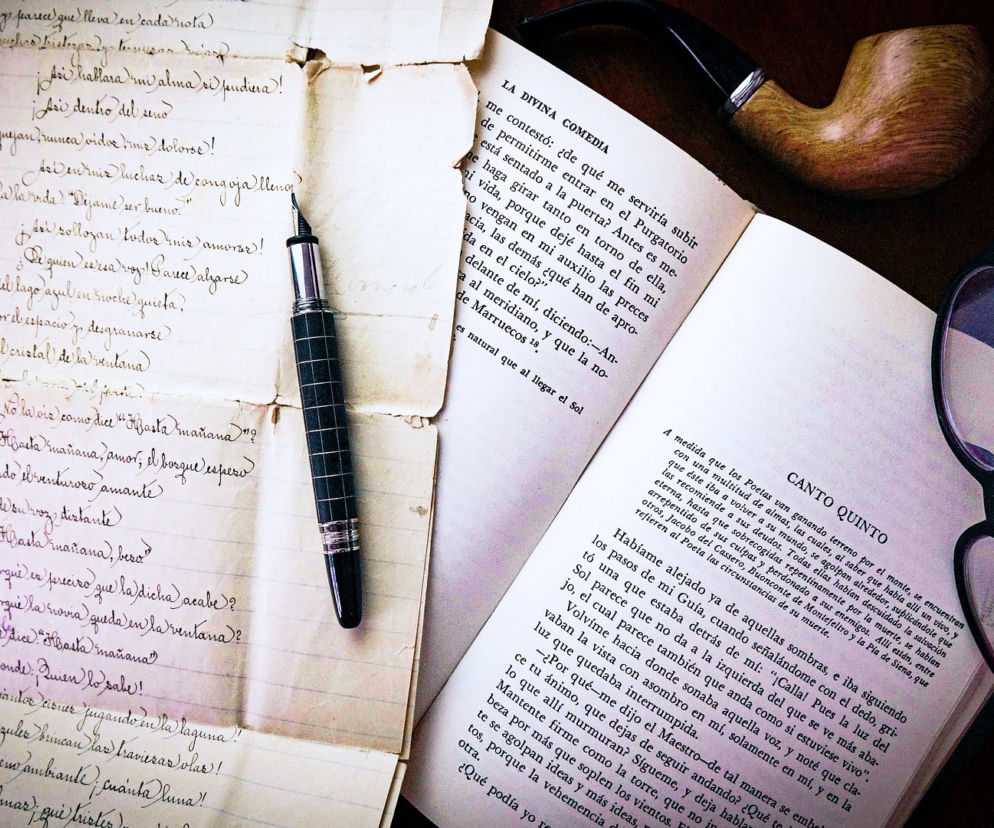 y parece que lleva en cada nota
muchas tristezas y ternuras
¡Así hallara mi alma si pudiera!
¡Así dentro del seno
quejan, nunca oídos, mis dolores!
Así en mis luchas, de congoja lleno,
a la vida: "Déjame ser bueno."
¡Así sollozan todos mis amores!
¿De quien es esa voz? Parece alzarse
del lago azul en noche quieta,
por el espacio y desgranarse
cristal de la ventana
¿No la oís como dice: "Hasta mañana"?
"Hasta mañana, amor; el bosque espeso
el venturoso amante
de su voz distante
"Hasta mañana, beso!"
¿Porqué es preciso que la dicha acabe?
¿Porqué la novia queda en la ventana?
dice: "Hasta mañana"
¡Quien lo sabe!
cisnes jugando en la laguna!
azules buscan las traviesas olas!
ambiente, cuánta luna!
¡qué tristes
LA DIVINA COMEDIA
me contestó: ¿de qué me serviría subir
de permitirme entrar en el Purgatorio
está sentado a la puerta? Antes es me-
haga girar tanto en torno de ella,
mi vida, porque dejé hasta el fin mi
no vengan en mi auxilio las preces
las demás ¿qué han de apro-
en el cielo?"
delante de mí, diciendo:—An-
al meridiano, y que la no-
de Marruecos 18.
es natural que al llegar el Sol
CANTO QUINTO
A medida que los Poetas van ganando terreno por el monte, se encuentran
con una multitud de almas, las cuales, al saber que había allí un vivo, y
que éste iba a volver a su mundo, se agolpan alrededor, suplicándole que
las recomiende a sus deudos. Todas ellas habían descuidado la salvación
eterna, hasta que sobrecogidas repentinamente por la muerte, se habían
arrepentido de sus culpas y perdonado a sus enemigos. Allí están, entre
otros, Jacobo del Cassero, Buonconte de Montefeltro y la Pía de Siena, que
refieren al Poeta las circunstancias de su muerte.
Habíame alejado ya de aquellas sombras, e iba siguiendo
los pasos de mi Guía, cuando señalándome con el dedo, gri-
tó una que estaba detrás de mí: "¡Calla! Pues la luz del
Sol parece que no da a la izquierda del que se ve más aba-
jo, el cual parece también que anda como si estuviese vivo".
Volvíme hacia donde sonaba aquella voz, y noté que cla-
vaban la vista con asombro en mí, solamente en mí, y en la
luz que quedaba interrumpida.
—¿Por qué—me dijo el Maestro—de tal manera se embe-
ce tu ánimo, que dejas de seguir andando? ¿Qué te
lo que allí murmuran? Sígueme, y deja hablar
Mantente firme como la torre, que no
beza por más que soplen los vientos.
te se agolpan ideas y más ideas,
tos, porque la vehemencia d
otra.
¿Qué podía yo re